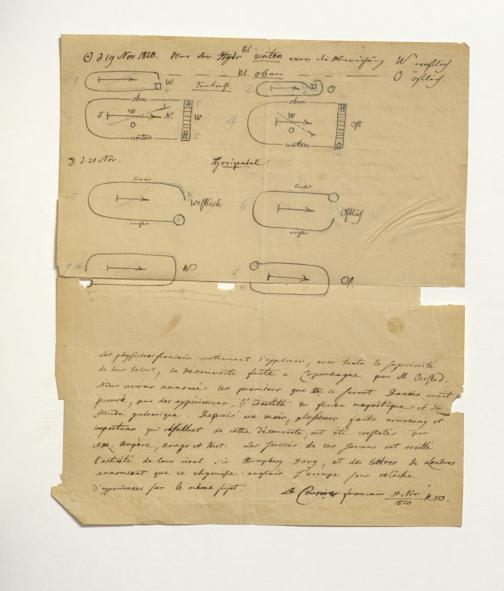 ☉ d 19 Nov. 1820. War der Hydr Pol unten war die Abweichung W westlich
Pol oben O östlich.
1 W 2 O
oben oben
S W N W
O O
unten unten
W 4 Ost
☽ d. 20 Nov. Horizontal!
5 westlich 6 östlich
7 W 8 Ost
Les physiciens francais continuent d'explorer, avec toute la supériorité
de leur talent, la découverte faite à Copenhague par M. Oersted.
Nous avons annoncé les premiers que ce savant Danois avait
prouvé, par des expériences, l'identité du fluide magnétique et du
fluide galvanique. Depuis un mois, plusieurs faits nouveaux et
importans qui résultent de cette découverte, ont été constatés par
MM. Ampère, Arago et Biot. Les succès de ces savans ont éveillé
l'activité de leur rival Sir Humphrey Davy, et des lettres de Londres
annoncent que ce chymiste anglais s'occupe sans relâche
d'expériences sur le même sujet. Le Courier francais 11. Nov. 1820 N. 313.